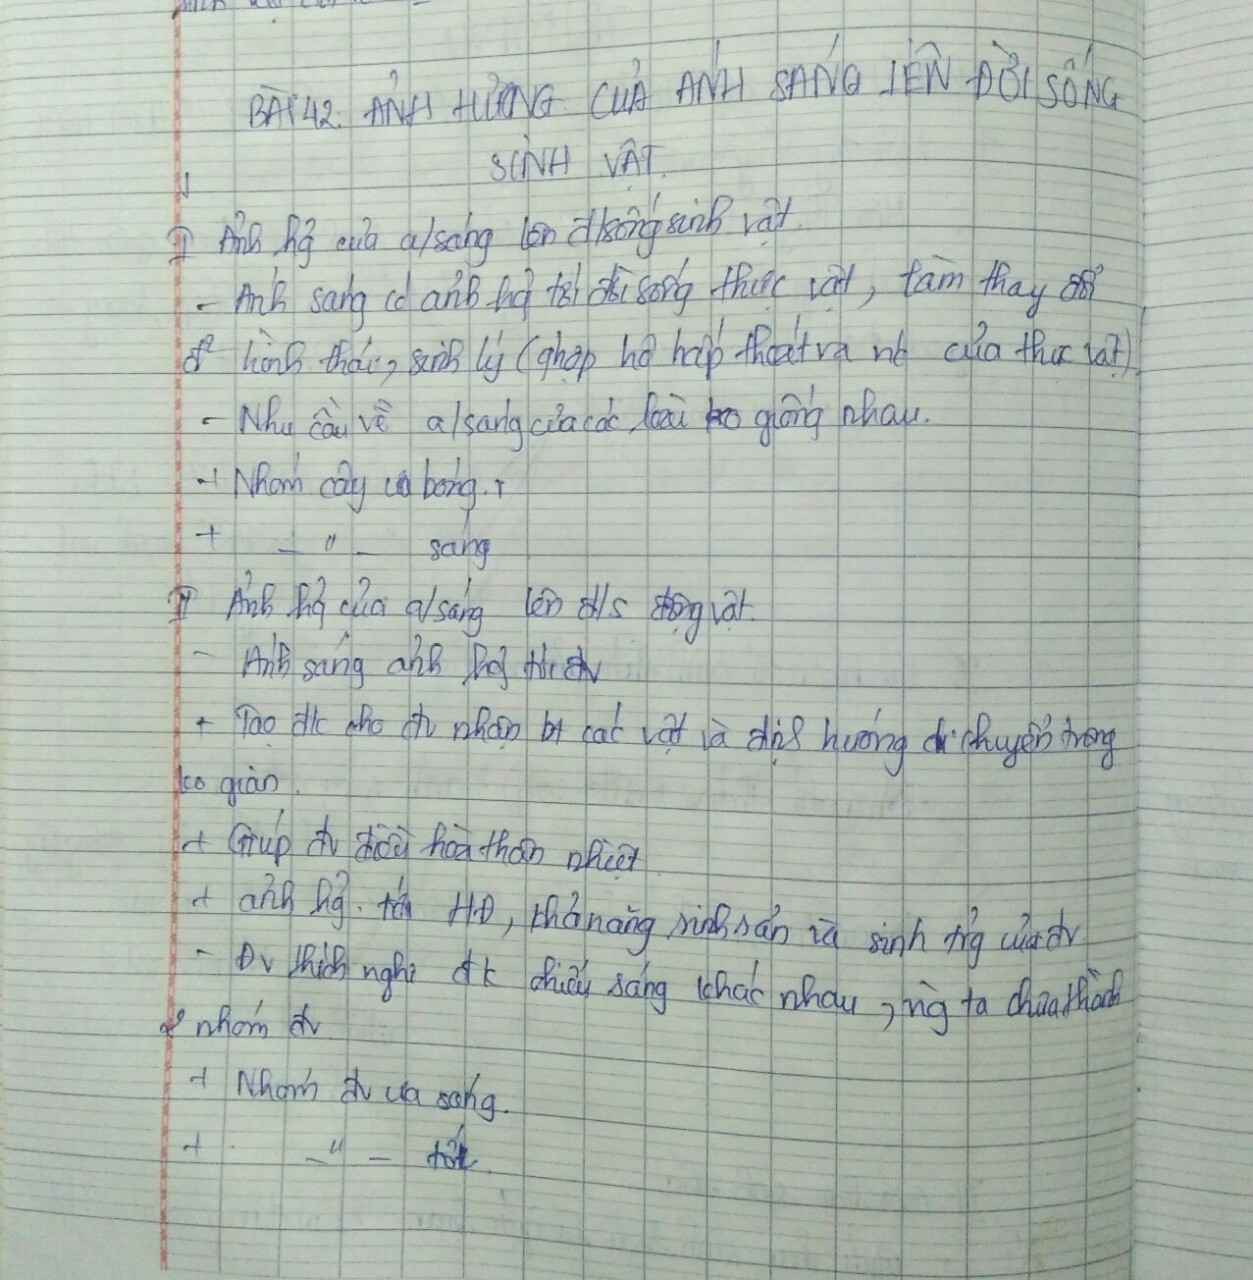 BÀI 42: ẢNH HƯỞNG CỦA ÁNH SÁNG LÊN ĐỜI SỐNG
SINH VẬT.
I Ảnh hg̉ của a/sáng lên đ/sống sinh vật.
- Ánh sáng có ảnh hg̉ tới đời sống thực vật, làm thay đổi
hình thái, sinh lý (qhợp hô hấp thoát và nc của thực vật)
- Nhu cầu về a/sáng của các loài ko giống nhau.
+ Nhóm cây ưa bóng.
+ - " - sáng
II Ảnh hg̉ của a/sáng lên đ/s động vật.
- Ánh sáng ảnh hg̉ tới đv
+ Tạo đk cho đv nhận bt các vật và định hướng di chuyển trong
ko gian.
+ Giúp đv điều hoà thân nhiệt
+ ảnh hg̉. tới HĐ, khả năng sinh sản và sinh trg̉ của đv
- Đv thích nghi đk chiếu sáng khác nhau, ng ta chia thành
2 nhóm đv
+ Nhóm đv ưa sáng.
+ - " - tối.